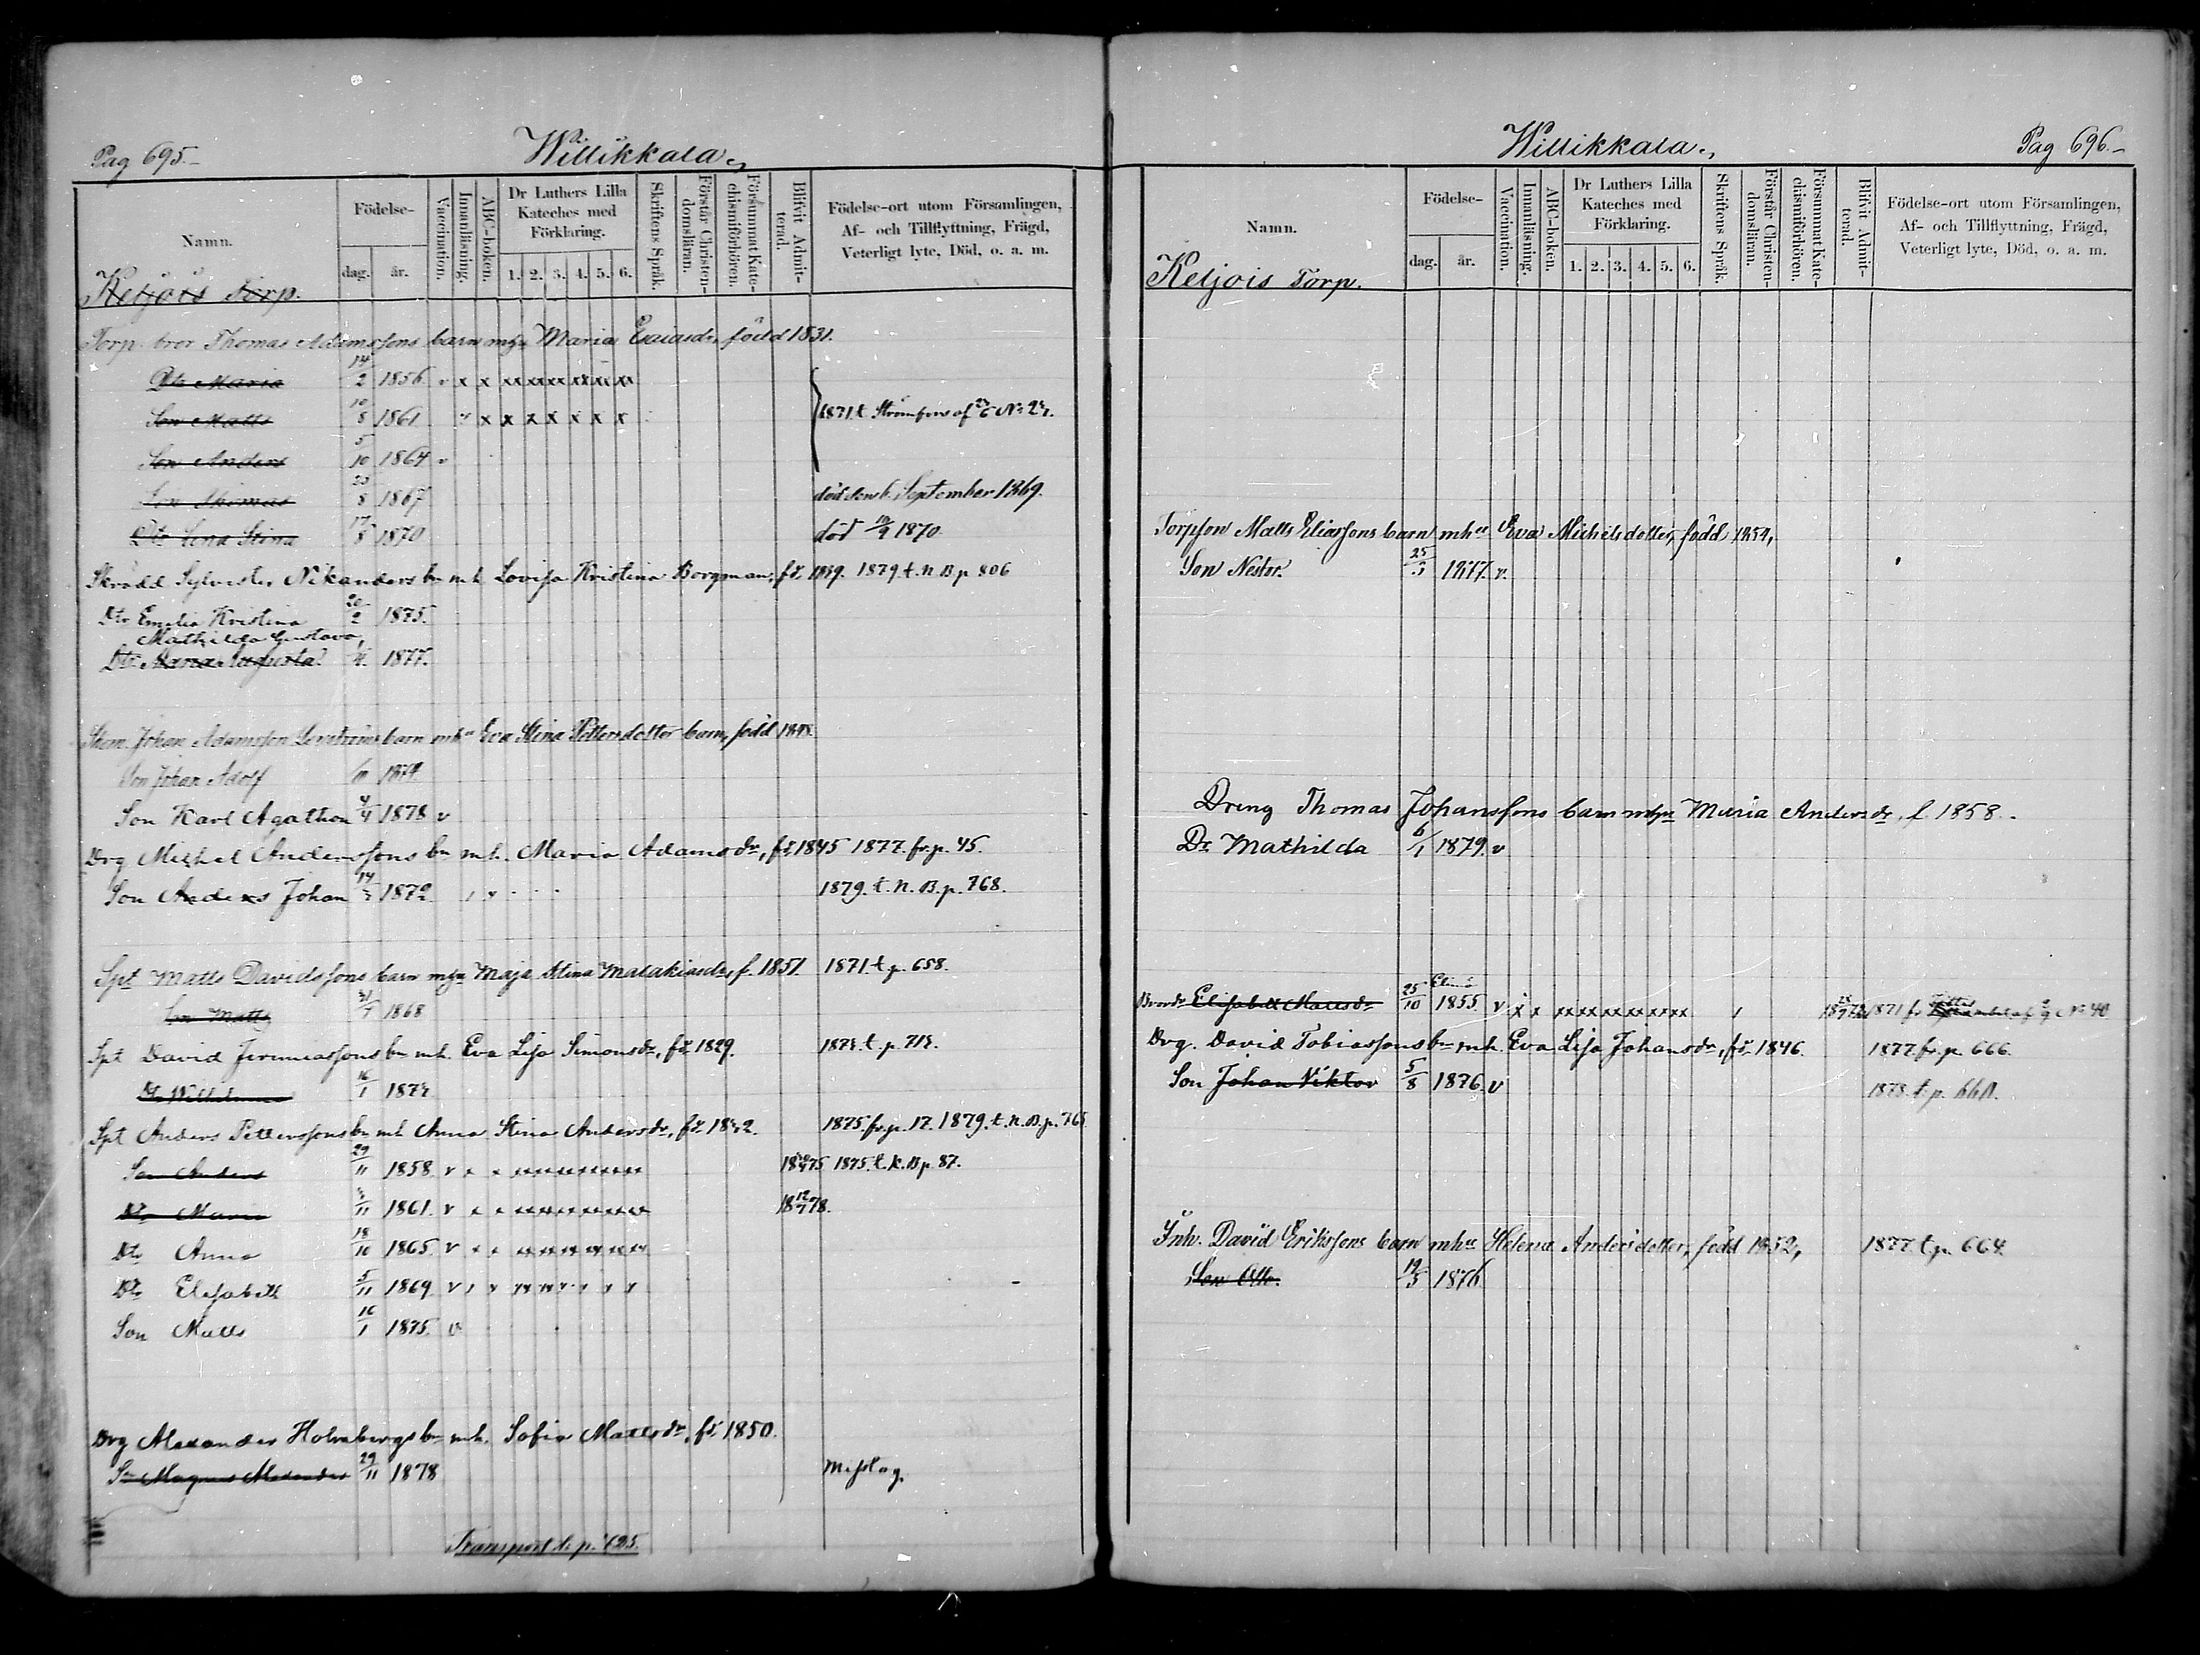 Pag 695.
Willikkala.
Namn.
Födelse-
dag.
år.
Vaccination.
Innanläsning.
ABC-boken.
Dr Luthers Lilla Kateches med Förklaring.
1. 2. 3. 4. 5. 6.
Skriftens Språk.
Förstår Christendomsläran.
Försummat Katechismiförhören.
Blifvit Admitterad.
Födelse-ort utom Församlingen,
Af- och Tillflyttning, Frägd,
Veterligt lyte, Död, o. a. m.
Ketjois Torp.
Torp. bror Thomas Adamssons barn mhn Maria Esaiasdr, född 1831.
Dtr Maria 14/2 1856 v x x xx xx xx xx xx xx
Son Matts 10/8 1861 x x x x x x x 1871 t. Strömfors af No 22.
Son Anders 5/10 1864 v
Son Thomas 23/8 1867 död den 6 September 1869.
Dtr Lena Stina 17/8 1870 död 10/9 1870.
Skrädd Sylvester Nikanders bn mh. Lovisa Kristina Borgman, fd. 1859. 1879. t. N. B. p 806
Dtr Emelia Kristina 20/2 1875.
Mathilda Gustava,
Dtr Maria Augusta 1877.
Johan Adamsson barn mha Eva Stina Pettersdotter barn, född 1848.
Son Johan Adolf 1874
Son Karl Agathon 4/4 1878 v
Drg Michel Anderssons bn mh. Maria Adamsdr, fd. 1845 1877. fr. p. 45.
Son Anders Johan 14 1872 1879. t. N. B. p. 768.
Spt Matts Davidssons barn mhn Maja Stina Malakiasdr, f. 1851. 1871 t p. 658.
Son Matts 1868
Spt David Jeremiassons bn mh. Eva Lisa Simonsdr, fd. 1829. 1872. t. p. 712.
Dtr Wilhelmina 16/1 1872
Spt Anders Petterssons bn mh Anna Stina Andersdr, fd. 1842. 1875. fr. p. 17. 1879. t. N. B. p. 765
Son Anders 29/11 1858 v x x xx xx xx xx xx xx 75 1875. t. k. B p. 87.
Dtr Maria 11 1861. v x x xx xx xx xx xx xx 18 12 78.
Dtr Anna 18/10 1865. v x x xx xx xx xx xx xx
Dtr Elisabeth 5/11 1869 v
Son Matts 16/1 1875. v
Drg Alexander Holmbergs bn mh. Sofia Mattsdr, fd. 1850.
Sn Magnus Alexander 29/11 1878
Transport till p. 625.
Willikkala.
Pag 696.
Namn.
Födelse-
dag.
år.
Vaccination.
Innanläsning.
ABC-boken.
Dr Luthers Lilla Kateches med Förklaring.
1. 2. 3. 4. 5. 6.
Skriftens Språk.
Förstår Christendomsläran.
Försummat Katechismiförhören.
Blifvit Admitterad.
Födelse-ort utom Församlingen,
Af- och Tillflyttning, Frägd,
Veterligt lyte, Död, o. a. m.
Ketjois Torp.
Torpson Matts Eliassons barn mha Eva Michelsdotter, född 1854,
Son Nestor. 25/3 1877. v.
Dreng Thomas Johanssons barn mhn Maria Andersdr, f. 1858.
Dr Mathilda 6/1 1879. v
Brordr Elisabeth Mattsdr 25/10 1855. v x x xx xx xx xx xx xx 1871 fr No 40
Drg. David Tobiassons bn mh. Eva Lisa Johansdr, fd. 1846. 1877. fr. p. 666.
Son Johan Viktor 5/8 1876. v 1878. t. p. 660.
Inh. David Erikssons barn mha Helena Andersdotter, född 1852, 1877 t. p. 664.
Son Otto. 19/3 1876